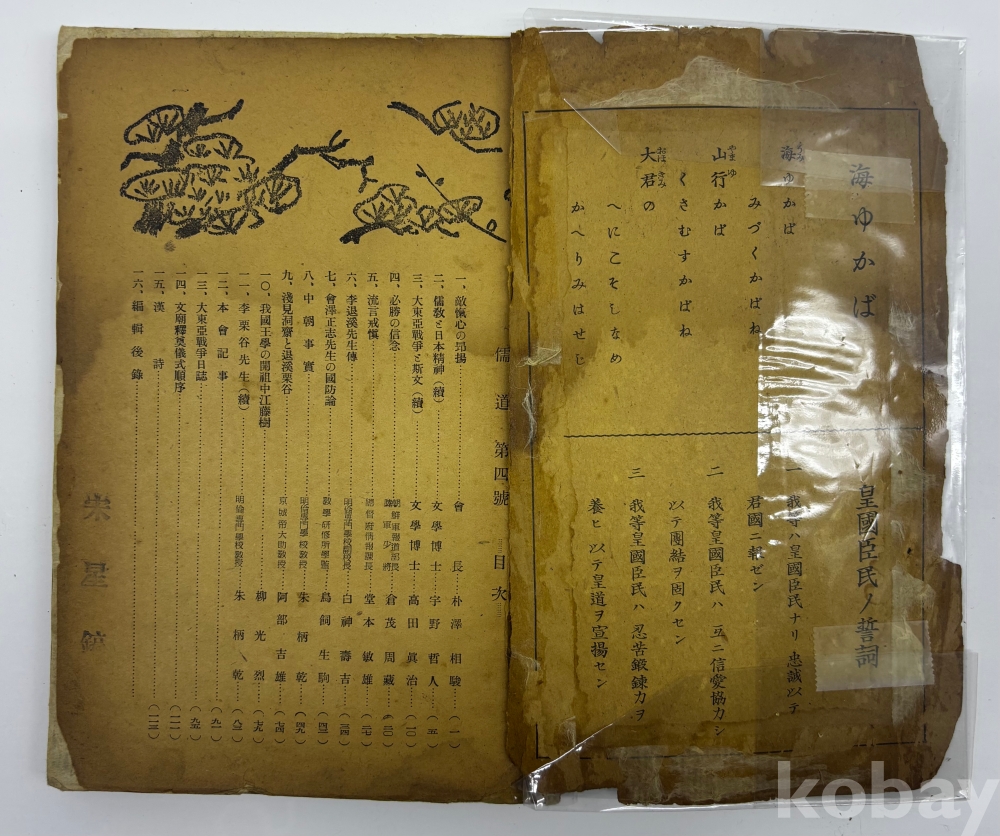 海ゆかば
海ゆかば
みづくかばね
山行かば
くさむすかばね
大君の
へにこそしなめ
かへりみはせじ
皇國臣民ノ誓詞
一 我等ハ皇國臣民ナリ忠誠以テ
君國ニ報ゼン
二 我等皇國臣民ハ互ニ信愛協力シ
以テ團結ヲ固クセン
三 我等皇國臣民ハ忍苦鍛鍊力ヲ
養ヒ以テ皇道ヲ宣揚セン
儒道 第四號 目次
一、敵愾心の昂揚 會長 朴澤相駿 (一)
二、儒敎と日本精神(續) 文學博士 宇野哲人 (五)
三、大東亞戰爭と斯文(續) 文學博士 高田眞治 (一〇)
四、必勝の信念 朝鮮軍報道部長 陸軍少將 倉茂周藏 (二〇)
五、流言戒愼 總督府情報課長 堂本敏雄 (二七)
六、李退溪先生傳 明倫專門學校敎授 白神壽吉 (三四)
七、會澤正志先生の國防論 敎學硏修所 鳥飼生駒 (四三)
八、中朝事實 明倫專門學校敎授 朱柄乾 (四九)
九、淺見洞齋と退溪栗谷 京城帝大助敎授 阿部吉雄
一〇、我國王學の開祖中江藤樹 柳光烈
一一、李栗谷先生(續) 明倫專門學校敎授 朱柄乾
一二、本會記事
一三、大東亞戰爭日誌
一四、文廟釋奠儀式順序
一五、漢詩
一六、編輯後錄
kobay